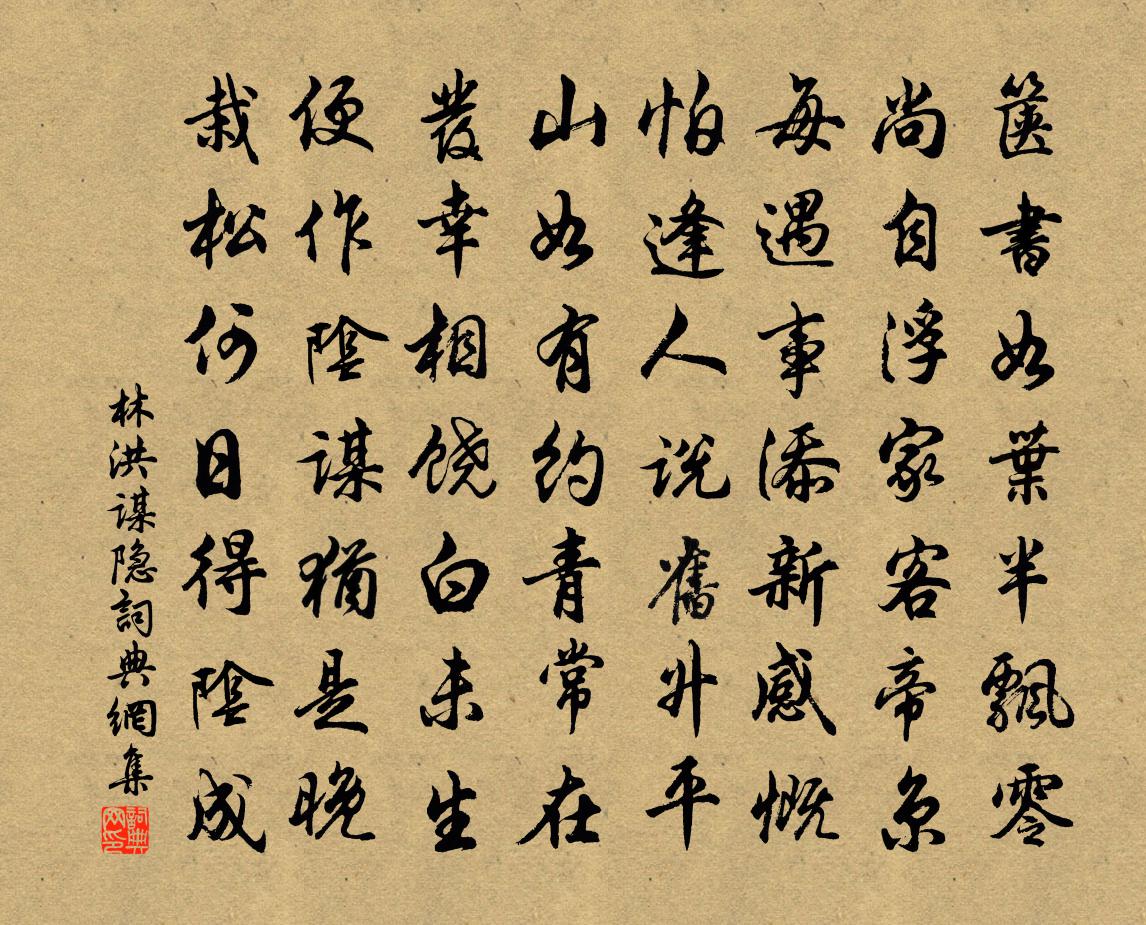 篋書如葉半飄零
尚自浮家客帝京
每遇事添新感慨
怕逢人說舊升平
山如有約青常在
發幸相饒白未生
便作陰謀猶是晚
栽松何日得陰成
林洪謀隐詞典網集
詞典网印